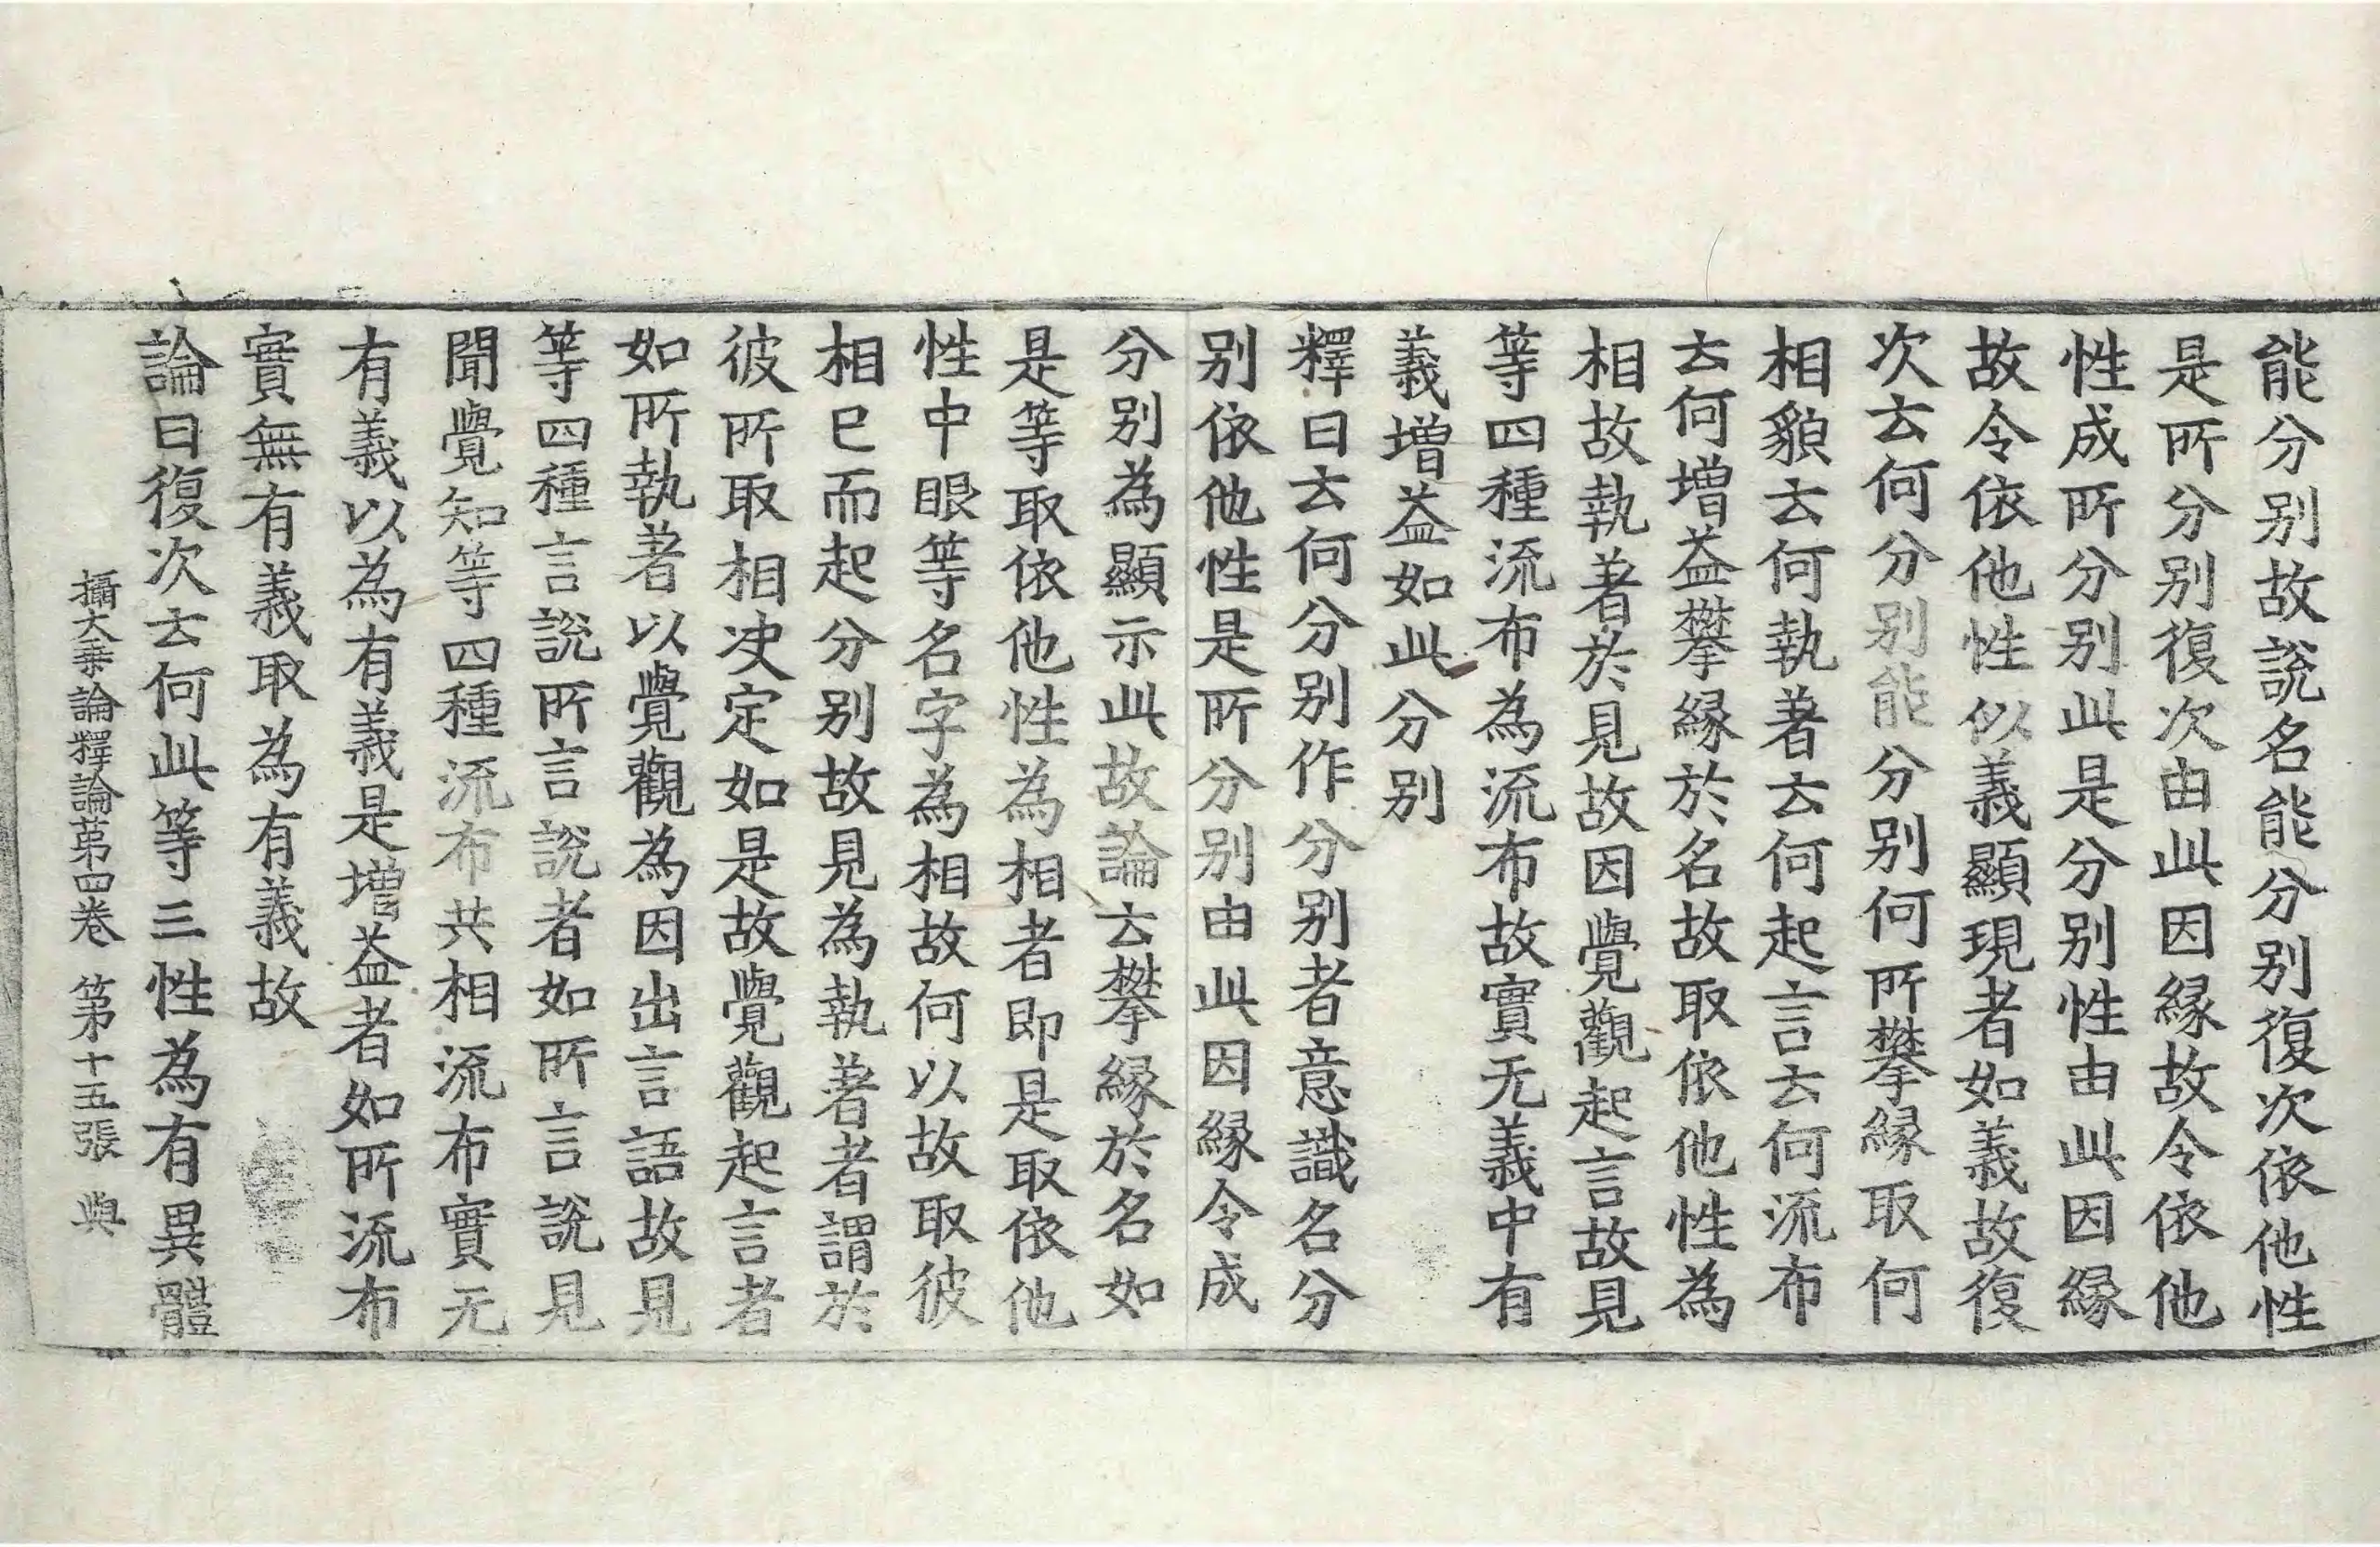 能分别故說名能分别復次依他性
是所分别復次由此因縁故令依他
性成所分别此是分别性由此因縁
故令依他性似義顯現者如義故復
次云何分别能分别何所攀縁取何
相貌云何執著云何起言云何流布
云何增益攀縁於名故取依他性為
相故執著於見故因覺觀起言故見
等四種流布為流布故實无義中有
義增益如此分别
釋曰云何分别作分别者意識名分
别依他性是所分别由此因縁令成
分别為顯示此故論云攀縁於名如
是等取依他性為相者即是取依他
性中眼等名字為相故何以故取彼
相已而起分别故見為執著者謂於
彼所取相决定如是故覺觀起言者
如所執著以覺觀為因出言語故見
等四種言說所言說者如所言說見
聞覺知等四種流布共相流布實无
有義以為有義是增益者如所流布
實無有義取為有義故
論曰復次云何此等三性為有異體
攝大乗論釋論第四卷 第十五張 典